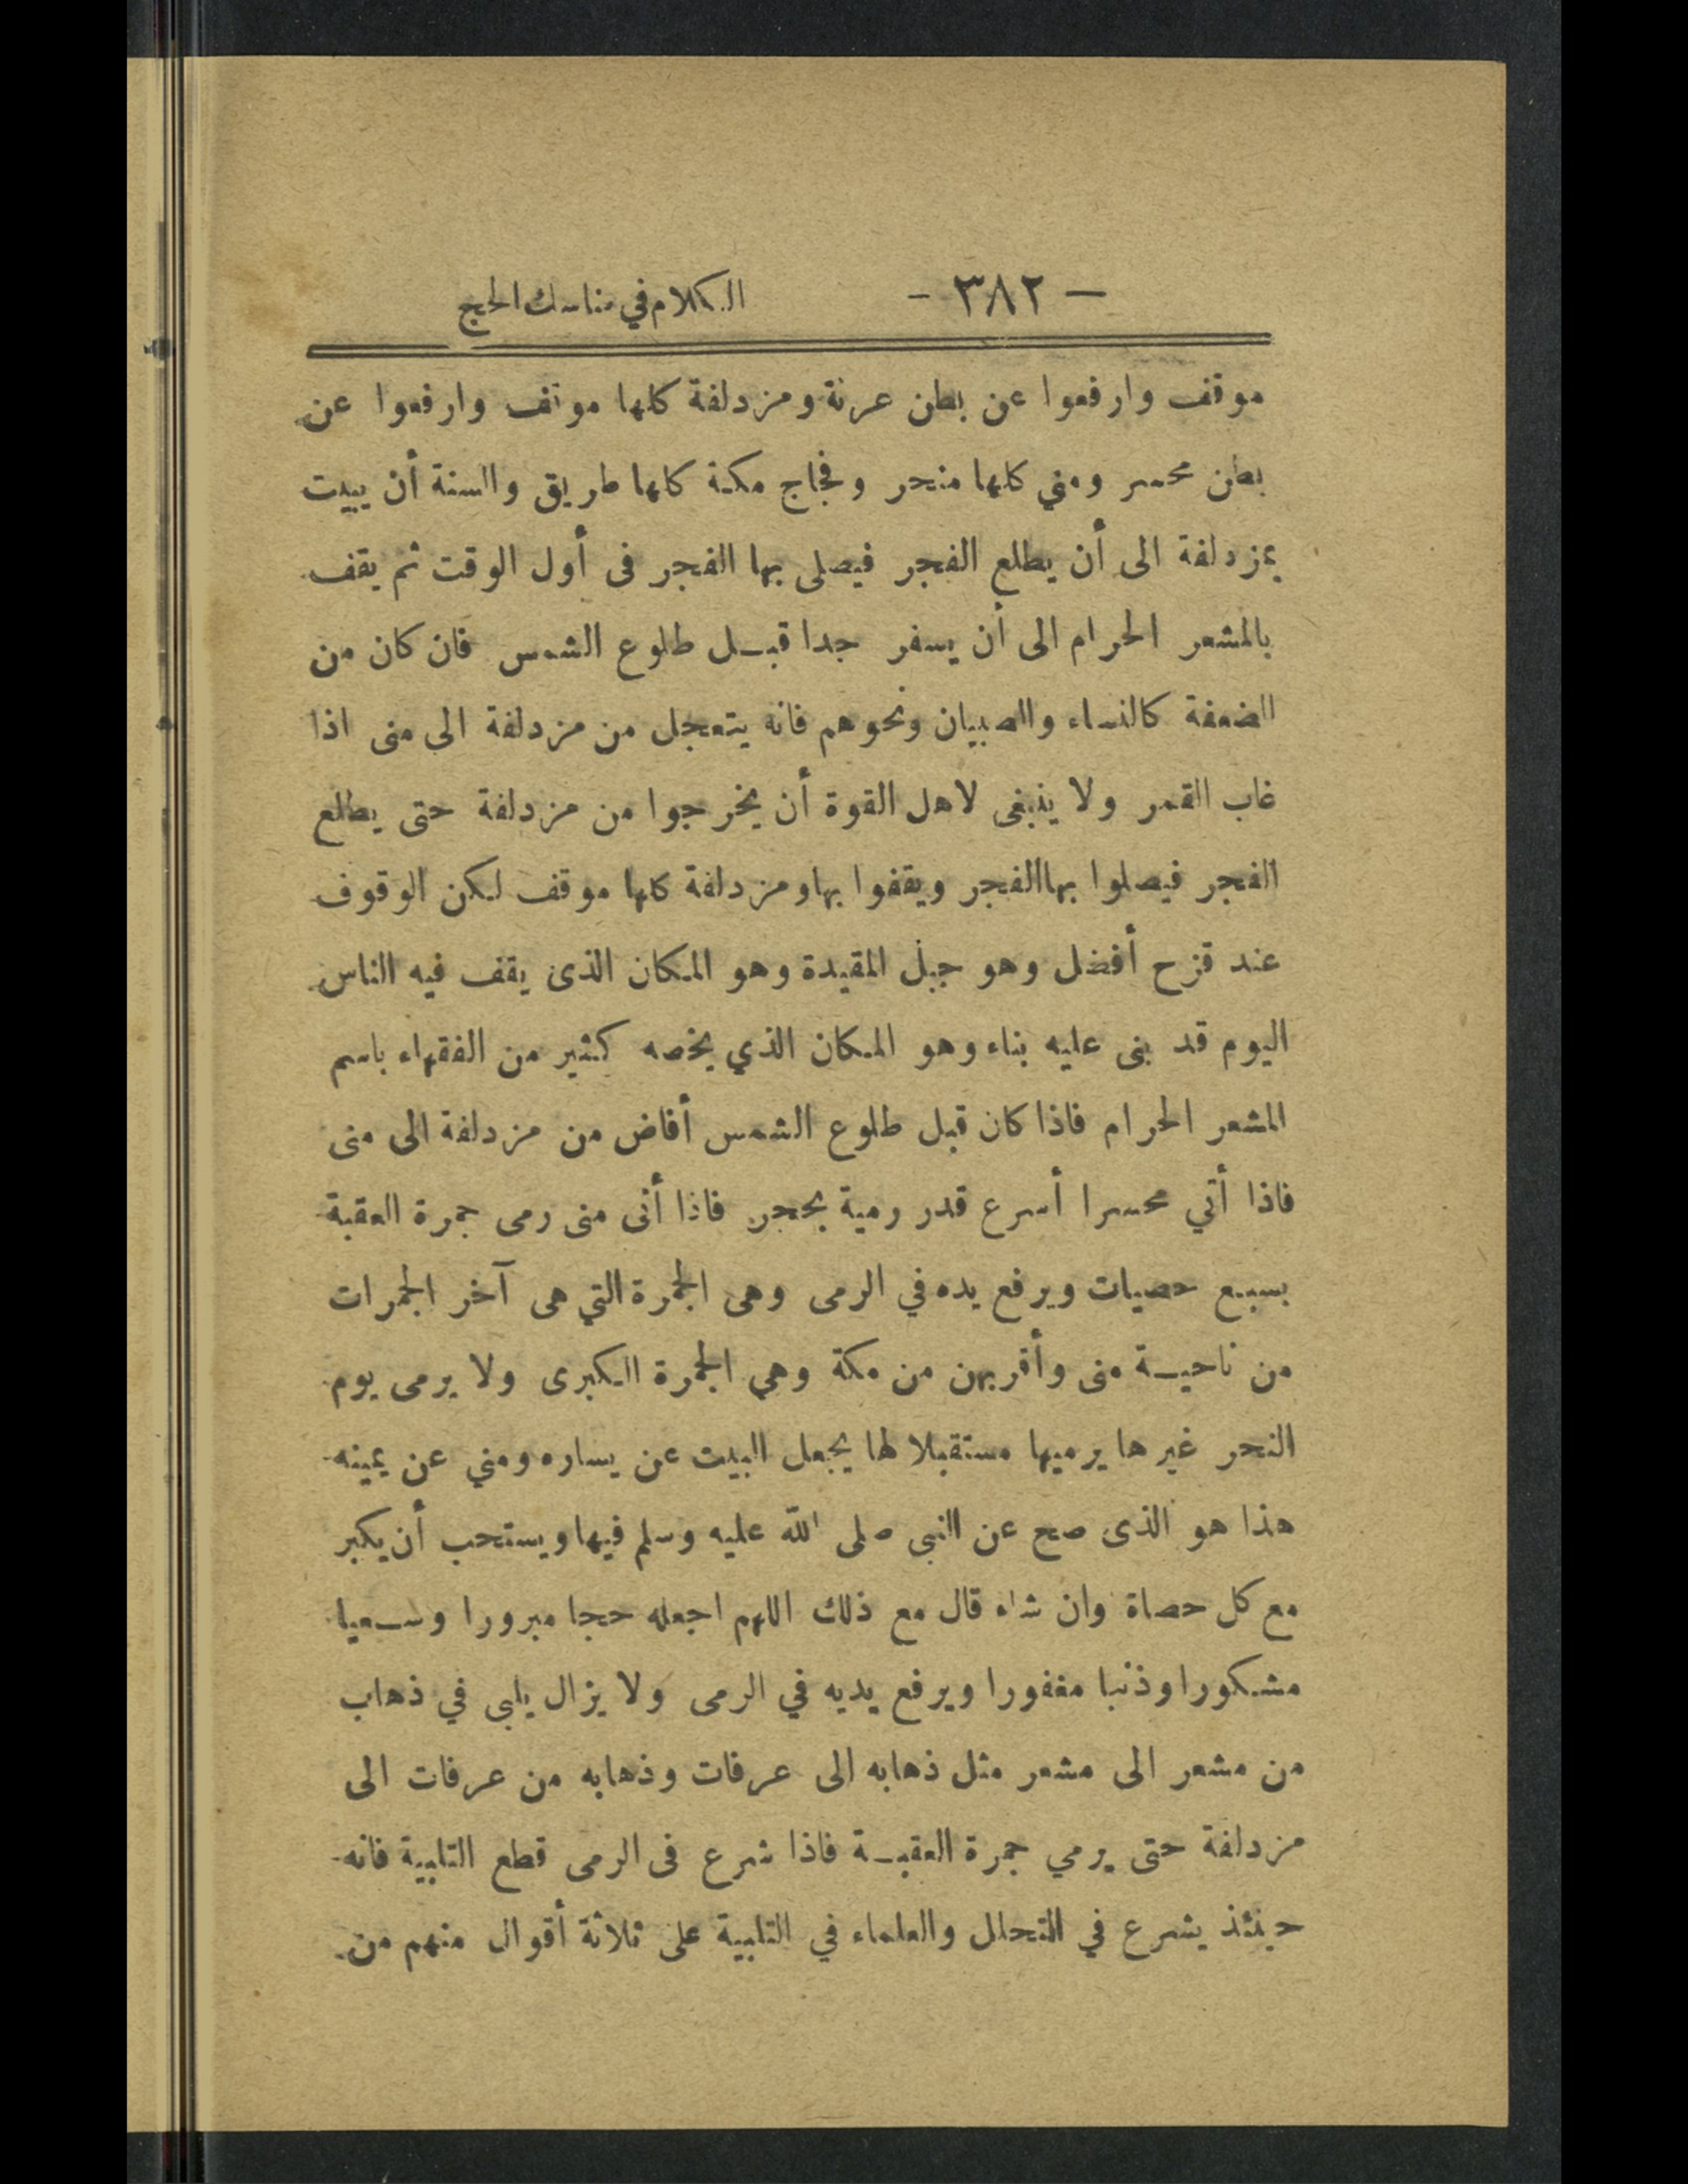 — ٣٨٢ — الكلام في مناسك الحج
موقف وارفعوا عن بطن عرنة ومزدلفة كلها موقف وارفعوا عن
بطن محسر ومنى كلها منحر وفجاج مكة كلها طريق والسنة أن يبيت
بمزدلفة الى أن يطلع الفجر فيصلى بها الفجر فى أول الوقت ثم يقف
بالمشعر الحرام الى أن يسفر جدا قبل طلوع الشمس فان كان من
الضعفة كالنساء والصبيان ونحوهم فانه يتعجل من مزدلفة الى منى اذا
غاب القمر ولا ينبغى لاهل القوة أن يخرجوا من مزدلفة حتى يطلع
الفجر فيصلوا بها الفجر ويقفوا بها ومزدلفة كلها موقف لكن الوقوف
عند قزح أفضل وهو جبل المقيدة وهو المكان الذى يقف فيه الناس
اليوم قد بنى عليه بناء وهو المكان الذي يخصه كثير من الفقهاء باسم
المشعر الحرام فاذا كان قبل طلوع الشمس أفاض من مزدلفة الى منى
فاذا أتي محسرا أسرع قدر رمية بحجر فاذا أتى منى رمى جمرة العقبة
بسبع حصيات ويرفع يده في الرمى وهى الجمرة التي هى آخر الجمرات
من ناحية منى وأقربهن من مكة وهي الجمرة الكبرى ولا يرمى يوم
النحر غيرها يرميها مستقبلا لها يجعل البيت عن يساره ومني عن يمينه
هذا هو الذى صح عن النبى صلى الله عليه وسلم فيها ويستحب أن يكبر
مع كل حصاة وان شاء قال مع ذلك اللهم اجعله حجا مبرورا وسعيا
مشكورا وذنبا مغفورا ويرفع يديه في الرمى ولا يزال يلبى في ذهاب
من مشعر الى مشعر مثل ذهابه الى عرفات وذهابه من عرفات الى
مزدلفة حتى يرمي جمرة العقبة فاذا شرع فى الرمى قطع التلبية فانه
حينئذ يشرع في التحلل والعلماء في التلبية على ثلاثة أقوال منهم من